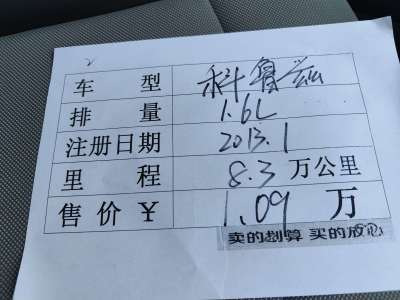 车型 科鲁兹
排量 1.6L
注册日期 2013.1
里程 8.3 万公里
售价¥ 1.09 万
卖的划算 买的放心